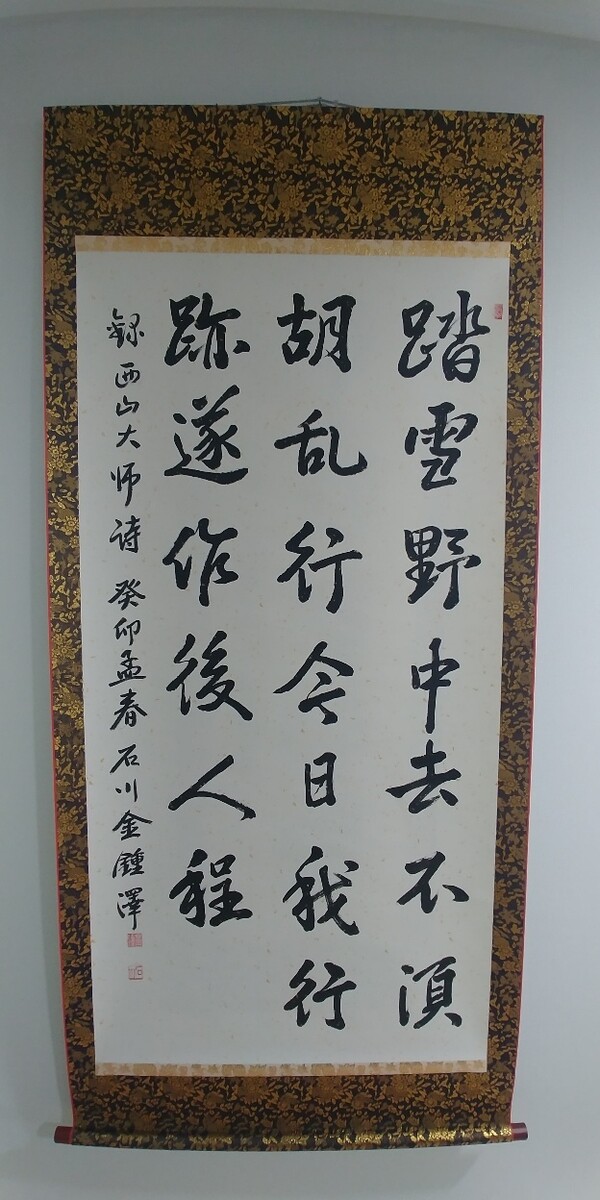 踏雪野中去不湏
胡乱行今日我行
跡遂作後人程
録西山大师诗 癸卯孟春 石川金鍾澤